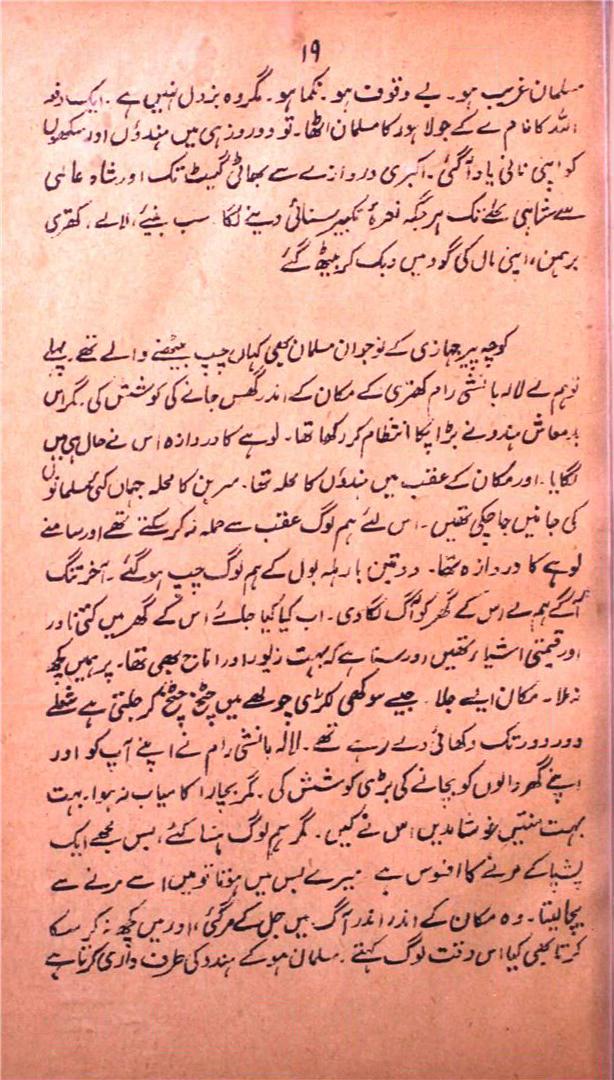 ۱۹
مسلمان غریب ہو۔ بے وقوف ہو۔ نکما ہو۔ مگر وہ بزدل نہیں ہے۔ ایک دفعہ
اللہ کا نام لے کے جو لاہور کا مسلمان اٹھا۔ تو دو روز ہی میں ہندؤں اور سکھوں
کو اپنی نانی یاد آگئی۔ اکبری دروازے سے بھاٹی گیٹ تک اور شاہ عالمی
سے شاہی محلے تک ہر جگہ نعرۂ تکبیر سنائی دینے لگا۔ سب بنیئے، لالے، کھتری
برہمن، اپنی ماں کی گود میں دبک کر بیٹھ گئے
کوچہ پیر جہازی کے نوجوان مسلمان بھی کہاں چپ بیٹھنے والے تھے۔ پہلے
تو ہم نے لالہ بانشی رام کھتری کے مکان کے اندر گھس جانے کی کوشش کی۔ مگر اس
بدمعاش ہندو نے بڑا پکا انتظام کر رکھا تھا۔ لوہے کا دروازہ اس نے حال ہی میں
لگایا۔ اور مکان کے عقب میں ہندؤں کا محلہ تھا۔ سرین کا محلہ جہاں کئی مسلمانوں
کی جانیں جا چکی تھیں۔ اس لئے ہم لوگ عقب سے حملہ نہ کر سکتے تھے اور سامنے
لوہے کا دروازہ تھا۔ دو تین بار ہلہ بول کے ہم لوگ چپ ہو گئے۔ آخر تنگ
آکے ہم نے اس کے گھر کو آگ لگا دی۔ اب کیا کیا جائے اس کے گھر میں کتنی نادر
اور قیمتی اشیا تھیں اور سنا ہے کہ بہت زیور اور اناج بھی تھا۔ پر ہمیں کچھ
نہ ملا۔ مکان ایسے جلا۔ جیسے سوکھی لکڑی چولھے میں چٹخ چٹخ کر جلتی ہے شعلے
دور دور تک دکھائی دے رہے تھے۔ لالہ بانشی رام نے اپنے آپ کو اور
اپنے گھر والوں کو بچانے کی بڑی کوشش کی۔ مگر بچارا کامیاب نہ ہوا۔ بہت
بہت منتیں خوشامدیں اس نے کیں۔ مگر ہم لوگ ہنسا کئے، بس مجھے ایک
پشپا کے مرنے کا افسوس ہے میرے بس میں ہوتا تو میں اسے مرنے سے
بچا لیتا۔ وہ مکان کے اندر اندر آگ میں جل کے مر گئی، اور میں کچھ نہ کر سکا
کرتا بھی کیا اس وقت لوگ کہتے۔ مسلمان ہو کے ہندو کی طرف داری کرتا ہے